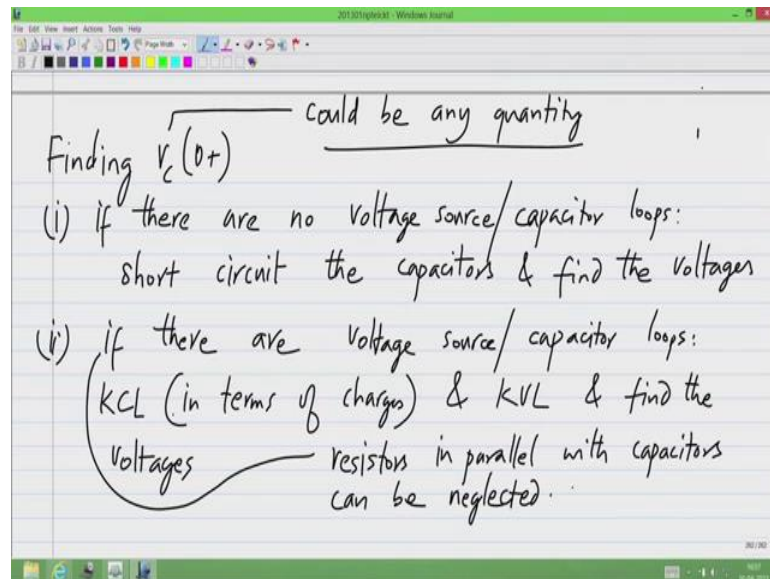 201301nptel.ckt - Windows Journal
File Edit View Insert Actions Tools Help
Page Width
B I
could be any quantity
Finding Vc(0+)
(i) if there are no voltage source/capacitor loops:
short circuit the capacitors & find the voltages
(ii) if there are voltage source/capacitor loops:
KCL (in terms of charges) & KVL & find the
voltages
resistors in parallel with capacitors
can be neglected.
392/392